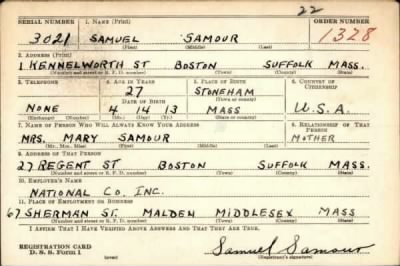 22
SERIAL NUMBER 1. NAME (Print) ORDER NUMBER
3021 SAMUEL SAMOUR 1328
(First) (Middle) (Last)
2. ADDRESS (Print)
1 KENNELWORTH ST BOSTON SUFFOLK MASS.
(Number and street or R. F. D. number) (Town) (County) (State)
3. TELEPHONE 4. AGE IN YEARS 5. PLACE OF BIRTH 6. COUNTRY OF CITIZENSHIP
27 STONEHAM
DATE OF BIRTH (Town or county)
NONE 4 14 13 MASS U.S.A.
(Exchange) (Number) (Mo.) (Day) (Yr.) (State or country)
7. NAME OF PERSON WHO WILL ALWAYS KNOW YOUR ADDRESS 8. RELATIONSHIP OF THAT PERSON
MRS. MARY SAMOUR MOTHER
(Mr., Mrs., Miss) (First) (Middle) (Last)
9. ADDRESS OF THAT PERSON
27 REGENT ST BOSTON SUFFOLK MASS.
(Number and street or R. F. D. number) (Town) (County) (State)
10. EMPLOYER'S NAME
NATIONAL CO. INC.
11. PLACE OF EMPLOYMENT OR BUSINESS
67 SHERMAN ST. MALDEN MIDDLESEX MASS
(Number and street or R. F. D. number) (Town) (County) (State)
I AFFIRM THAT I HAVE VERIFIED ABOVE ANSWERS AND THAT THEY ARE TRUE.
REGISTRATION CARD
D. S. S. Form 1 Samuel Samour